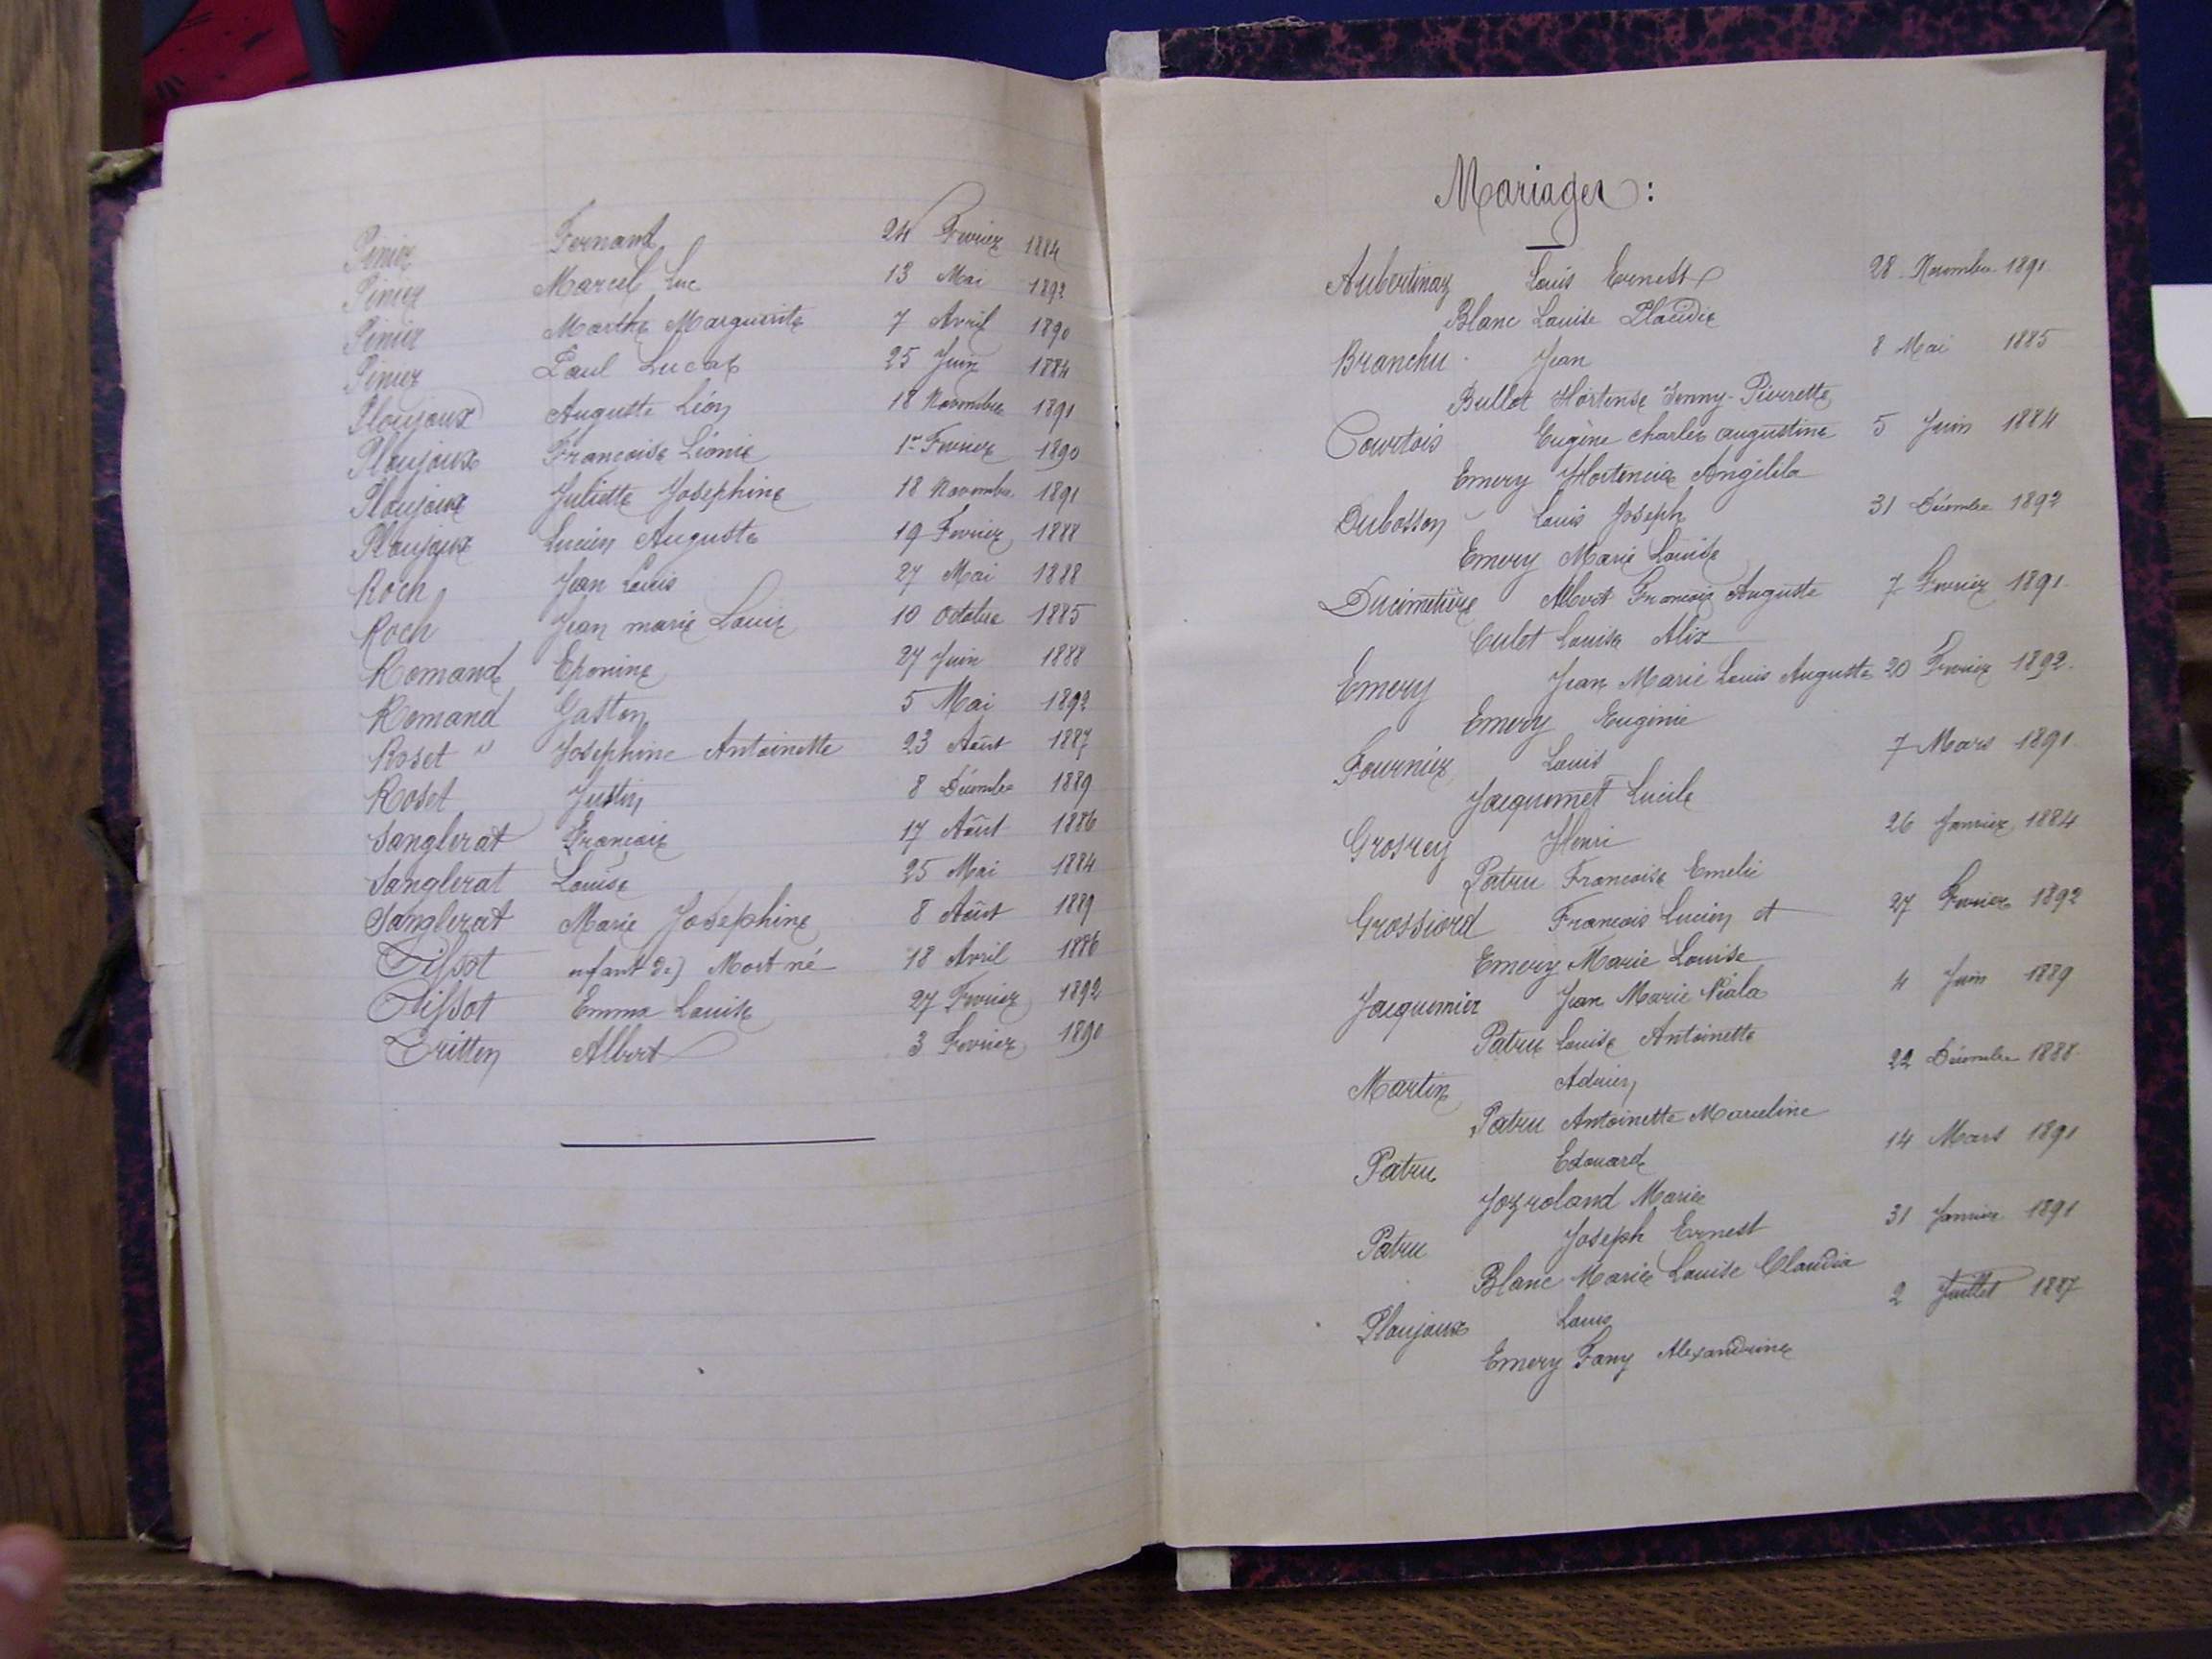 Pinier Fernand 24 Fevrier 1884
Pinier Marcel Luc 13 Mai 1892
Pinier Marthe Marguerite 7 Avril 1890
Pinier Paul Lucas 25 Juin 1884
Ploujoux Auguste Léon 18 Novembre 1891
Ploujoux Francoise Léonie 1er Fevrier 1890
Ploujoux Juliette Josephine 18 Novembre 1891
Ploujoux Lucien Auguste 19 Fevrier 1888
Roch Jean Louis 27 Mai 1888
Roch Jean marie Louis 10 Octobre 1885
Romand Eponine 27 Juin 1888
Romand Gaston 5 Mai 1892
Roset " Josephine Antoinette 23 Août 1887
Roset Justin 8 Décembre 1889
Sanglerat Francois 17 Août 1886
Sanglerat Louise 25 Mai 1884
Sanglerat Marie Josephine 8 Août 1889
Tissot enfant de) Mort né 18 Avril 1886
Tissot Emma Louise 27 Fevrier 1892
Tritten Albert 3 Fevrier 1890
Mariages :
Aubertinaz Louis Ernest 28 Novembre 1891
Blanc Louise Claudie
Branchu Jean 8 Mai 1885
Bullat Hortense Jenny-Pierrette
Courtois Eugène charles augustine 5 Juin 1884
Emery Hortencia Angélila
Dubosson Louis Joseph 31 Décembre 1892
Emery Marie Louise
Ducimetière Albert Francois Auguste 7 Fevrier 1891
Culet Louise Alix
Emery Jean Marie Louis Auguste 20 Fevrier 1892
Emery Eugénie
Fournier Louis 7 Mars 1891
Jacquemet Lucile
Grosrey Henri 26 Janvier 1884
Patru Francoise Emelie
Grossiord Francois Lucien et 27 Fevrier 1892
Emery Marie Louise
Jacquemier Jean Marie 4 Juin 1889
Patru Louise Antoinette
Martin Adrien 22 Décembre 1888
Patru Antoinette Marceline
Patru Edouard 14 Mars 1891
Jozroland Marie
Patru Joseph Ernest 31 Janvier 1891
Blanc Marie Louise Claudia
Ploujoux Louis 2 Juillet 1887
Emery Fany Alexandrine